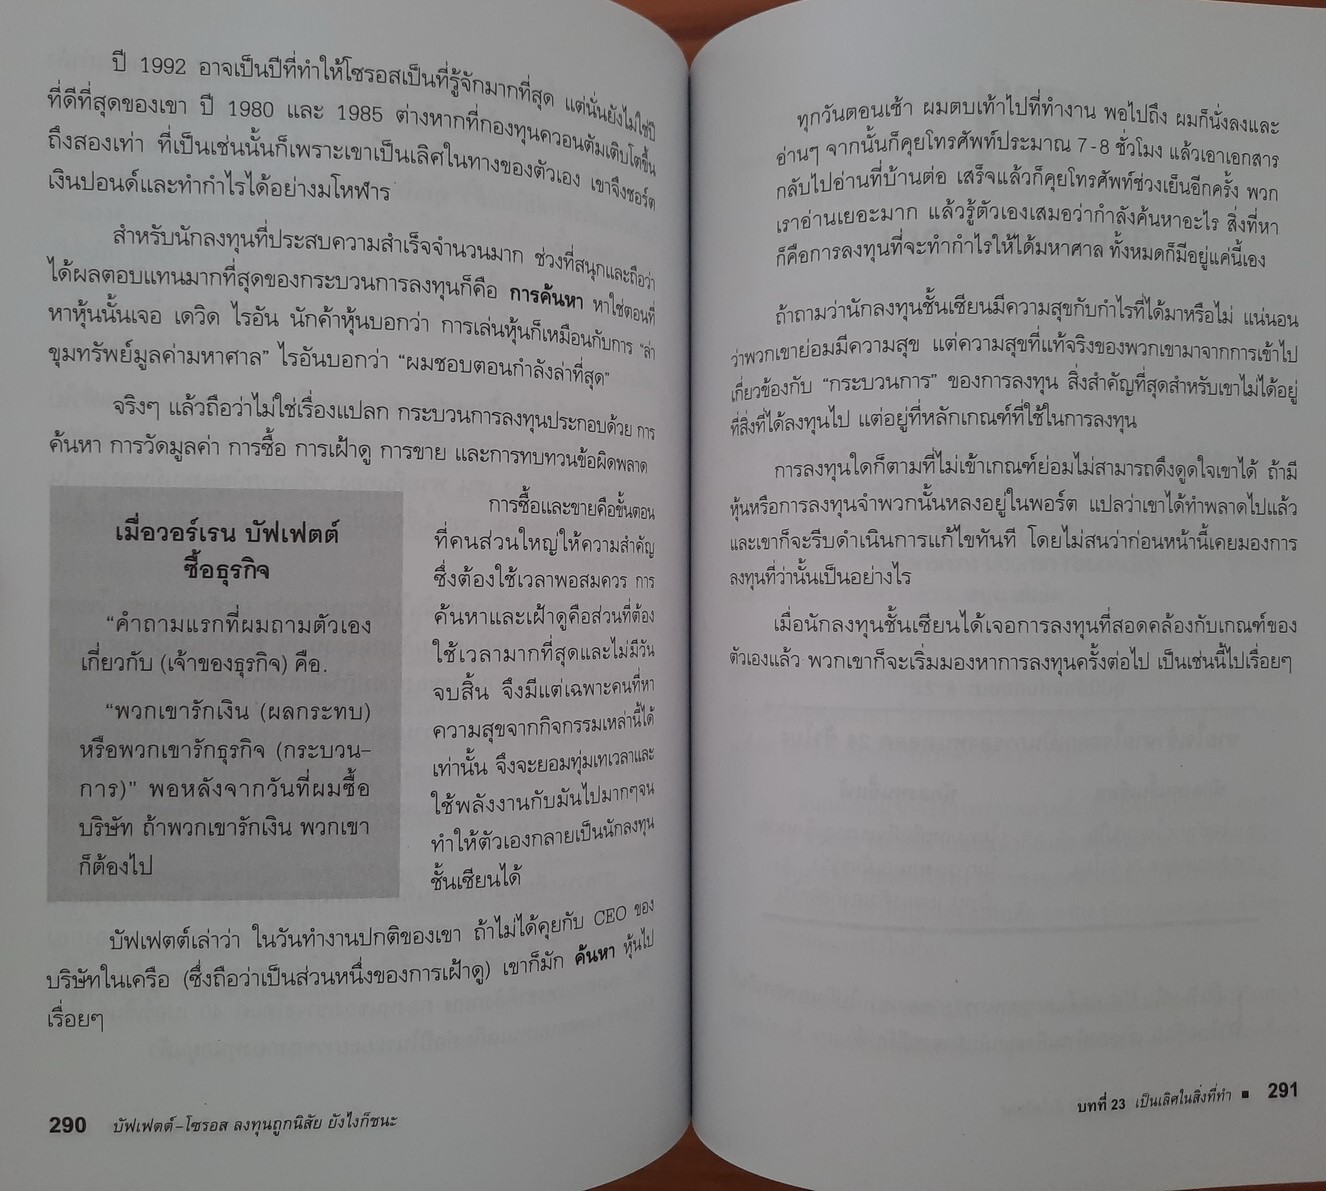 ปี 1992 อาจเป็นปีที่ทำให้โซรอสเป็นที่รู้จักมากที่สุด แต่นั่นยังไม่ใช่ปี
ที่ดีที่สุดของเขา ปี 1980 และ 1985 ต่างหากที่กองทุนควอนตัมเติบโตขึ้น
ถึงสองเท่า ที่เป็นเช่นนั้นก็เพราะเขาเป็นเลิศในทางของตัวเอง เขาจึงชอร์ต
เงินปอนด์และทำกำไรได้อย่างมโหฬาร
สำหรับนักลงทุนที่ประสบความสำเร็จจำนวนมาก ช่วงที่สนุกและถือว่า
ได้ผลตอบแทนมากที่สุดของกระบวนการลงทุนก็คือ การค้นหา หาใช่ตอนที่
หาหุ้นนั้นเจอ เดวิด ไรอัน นักค้าหุ้นบอกว่า การเล่นหุ้นก็เหมือนกับการ “ล่า
ขุมทรัพย์มูลค่ามหาศาล” ไรอันบอกว่า “ผมชอบตอนกำลังล่าที่สุด”
จริงๆ แล้วถือว่าไม่ใช่เรื่องแปลก กระบวนการลงทุนประกอบด้วย การ
ค้นหา การวัดมูลค่า การซื้อ การเฝ้าดู การขาย และการทบทวนข้อผิดพลาด
เมื่อวอร์เรน บัฟเฟตต์
ซื้อธุรกิจ
“คำถามแรกที่ผมถามตัวเอง
เกี่ยวกับ (เจ้าของธุรกิจ) คือ.
“พวกเขารักเงิน (ผลกระทบ)
หรือพวกเขารักธุรกิจ (กระบวน-
การ)” พอหลังจากวันที่ผมซื้อ
บริษัท ถ้าพวกเขารักเงิน พวกเขา
ก็ต้องไป
การซื้อและขายคือขั้นตอน
ที่คนส่วนใหญ่ให้ความสำคัญ
ซึ่งต้องใช้เวลาพอสมควร การ
ค้นหาและเฝ้าดูคือส่วนที่ต้อง
ใช้เวลามากที่สุดและไม่มีวัน
จบสิ้น จึงมีแต่เฉพาะคนที่หา
ความสุขจากกิจกรรมเหล่านี้ได้
เท่านั้น จึงจะยอมทุ่มเทเวลาและ
ใช้พลังงานกับมันไปมากๆจน
ทำให้ตัวเองกลายเป็นนักลงทุน
ชั้นเซียนได้
บัฟเฟตต์เล่าว่า ในวันทำงานปกติของเขา ถ้าไม่ได้คุยกับ CEO ของ
บริษัทในเครือ (ซึ่งถือว่าเป็นส่วนหนึ่งของการเฝ้าดู) เขาก็มัก ค้นหา หุ้นไป
เรื่อยๆ
290 บัฟเฟตต์-โซรอส ลงทุนถูกนิสัย ยังไงก็ชนะ
ทุกวันตอนเช้า ผมตบเท้าไปที่ทำงาน พอไปถึง ผมก็นั่งลงและ
อ่านๆ จากนั้นก็คุยโทรศัพท์ประมาณ 7-8 ชั่วโมง แล้วเอาเอกสาร
กลับไปอ่านที่บ้านต่อ เสร็จแล้วก็คุยโทรศัพท์ช่วงเย็นอีกครั้ง พวก
เราอ่านเยอะมาก แล้วรู้ตัวเองเสมอว่ากำลังค้นหาอะไร สิ่งที่หา
ก็คือการลงทุนที่จะทำกำไรให้ได้มหาศาล ทั้งหมดก็มีอยู่แค่นี้เอง
ถ้าถามว่านักลงทุนชั้นเซียนมีความสุขกับกำไรที่ได้มาหรือไม่ แน่นอน
ว่าพวกเขาย่อมมีความสุข แต่ความสุขที่แท้จริงของพวกเขามาจากการเข้าไป
เกี่ยวข้องกับ “กระบวนการ” ของการลงทุน สิ่งสำคัญที่สุดสำหรับเขาไม่ได้อยู่
ที่สิ่งที่ได้ลงทุนไป แต่อยู่ที่หลักเกณฑ์ที่ใช้ในการลงทุน
การลงทุนใดก็ตามที่ไม่เข้าเกณฑ์ย่อมไม่สามารถดึงดูดใจเขาได้ ถ้ามี
หุ้นหรือการลงทุนจำพวกนั้นหลงอยู่ในพอร์ต แปลว่าเขาได้ทำพลาดไปแล้ว
และเขาก็จะรีบดำเนินการแก้ไขทันที โดยไม่สนว่าก่อนหน้านี้เคยมองการ
ลงทุนที่ว่านั้นเป็นอย่างไร
เมื่อนักลงทุนชั้นเซียนได้เจอการลงทุนที่สอดคล้องกับเกณฑ์ของ
ตัวเองแล้ว พวกเขาก็จะเริ่มมองหาการลงทุนครั้งต่อไป เป็นเช่นนี้ไปเรื่อยๆ
บทที่ 23 เป็นเลิศในสิ่งที่ทำ ■ 291